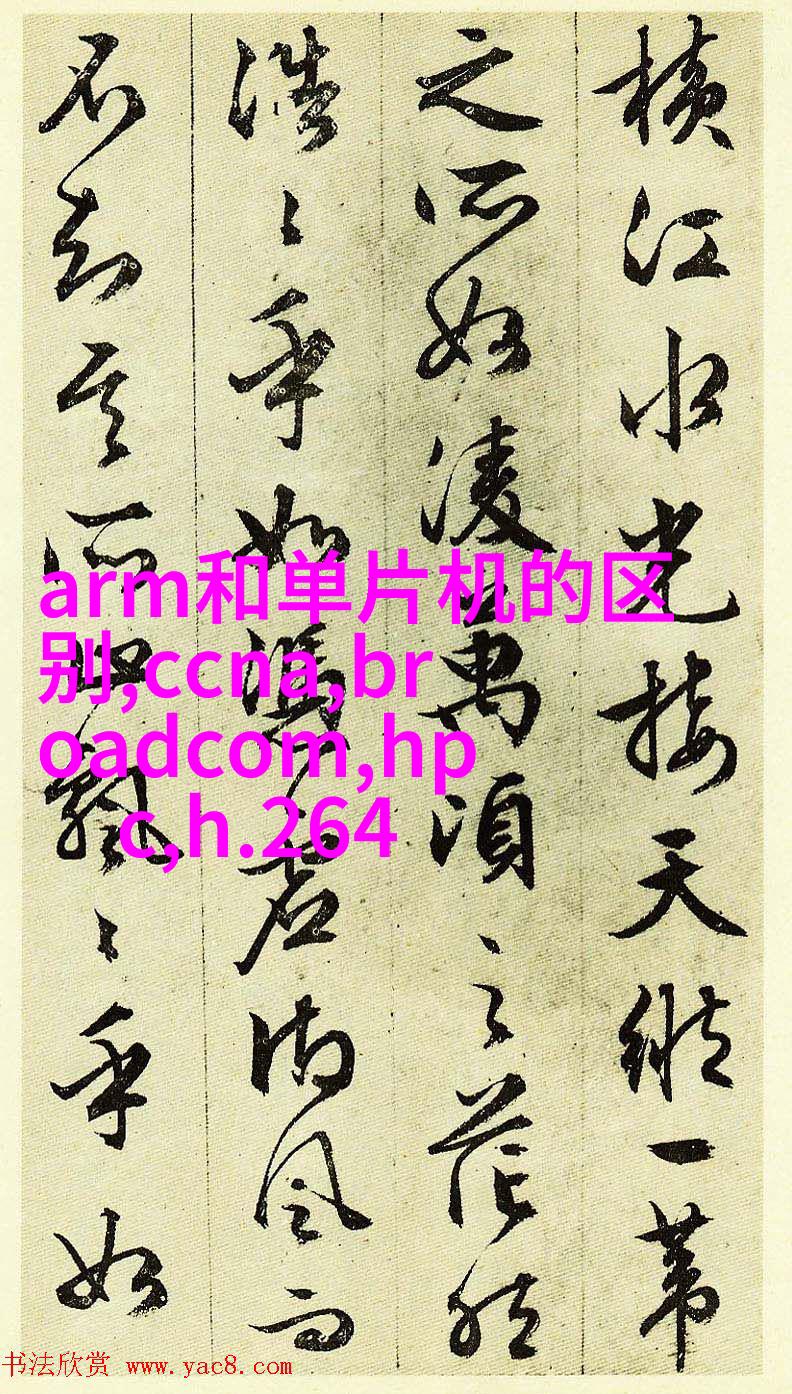 橫江水光接天縱一葦
之所如凌萬頃之茫然
浩〻乎如馮虛御風而
不知其所止飄〻乎如
arm和单片机的区
别,ccna,br
oadcom,hp
c,h.264
书法欣赏 www.yac8.com